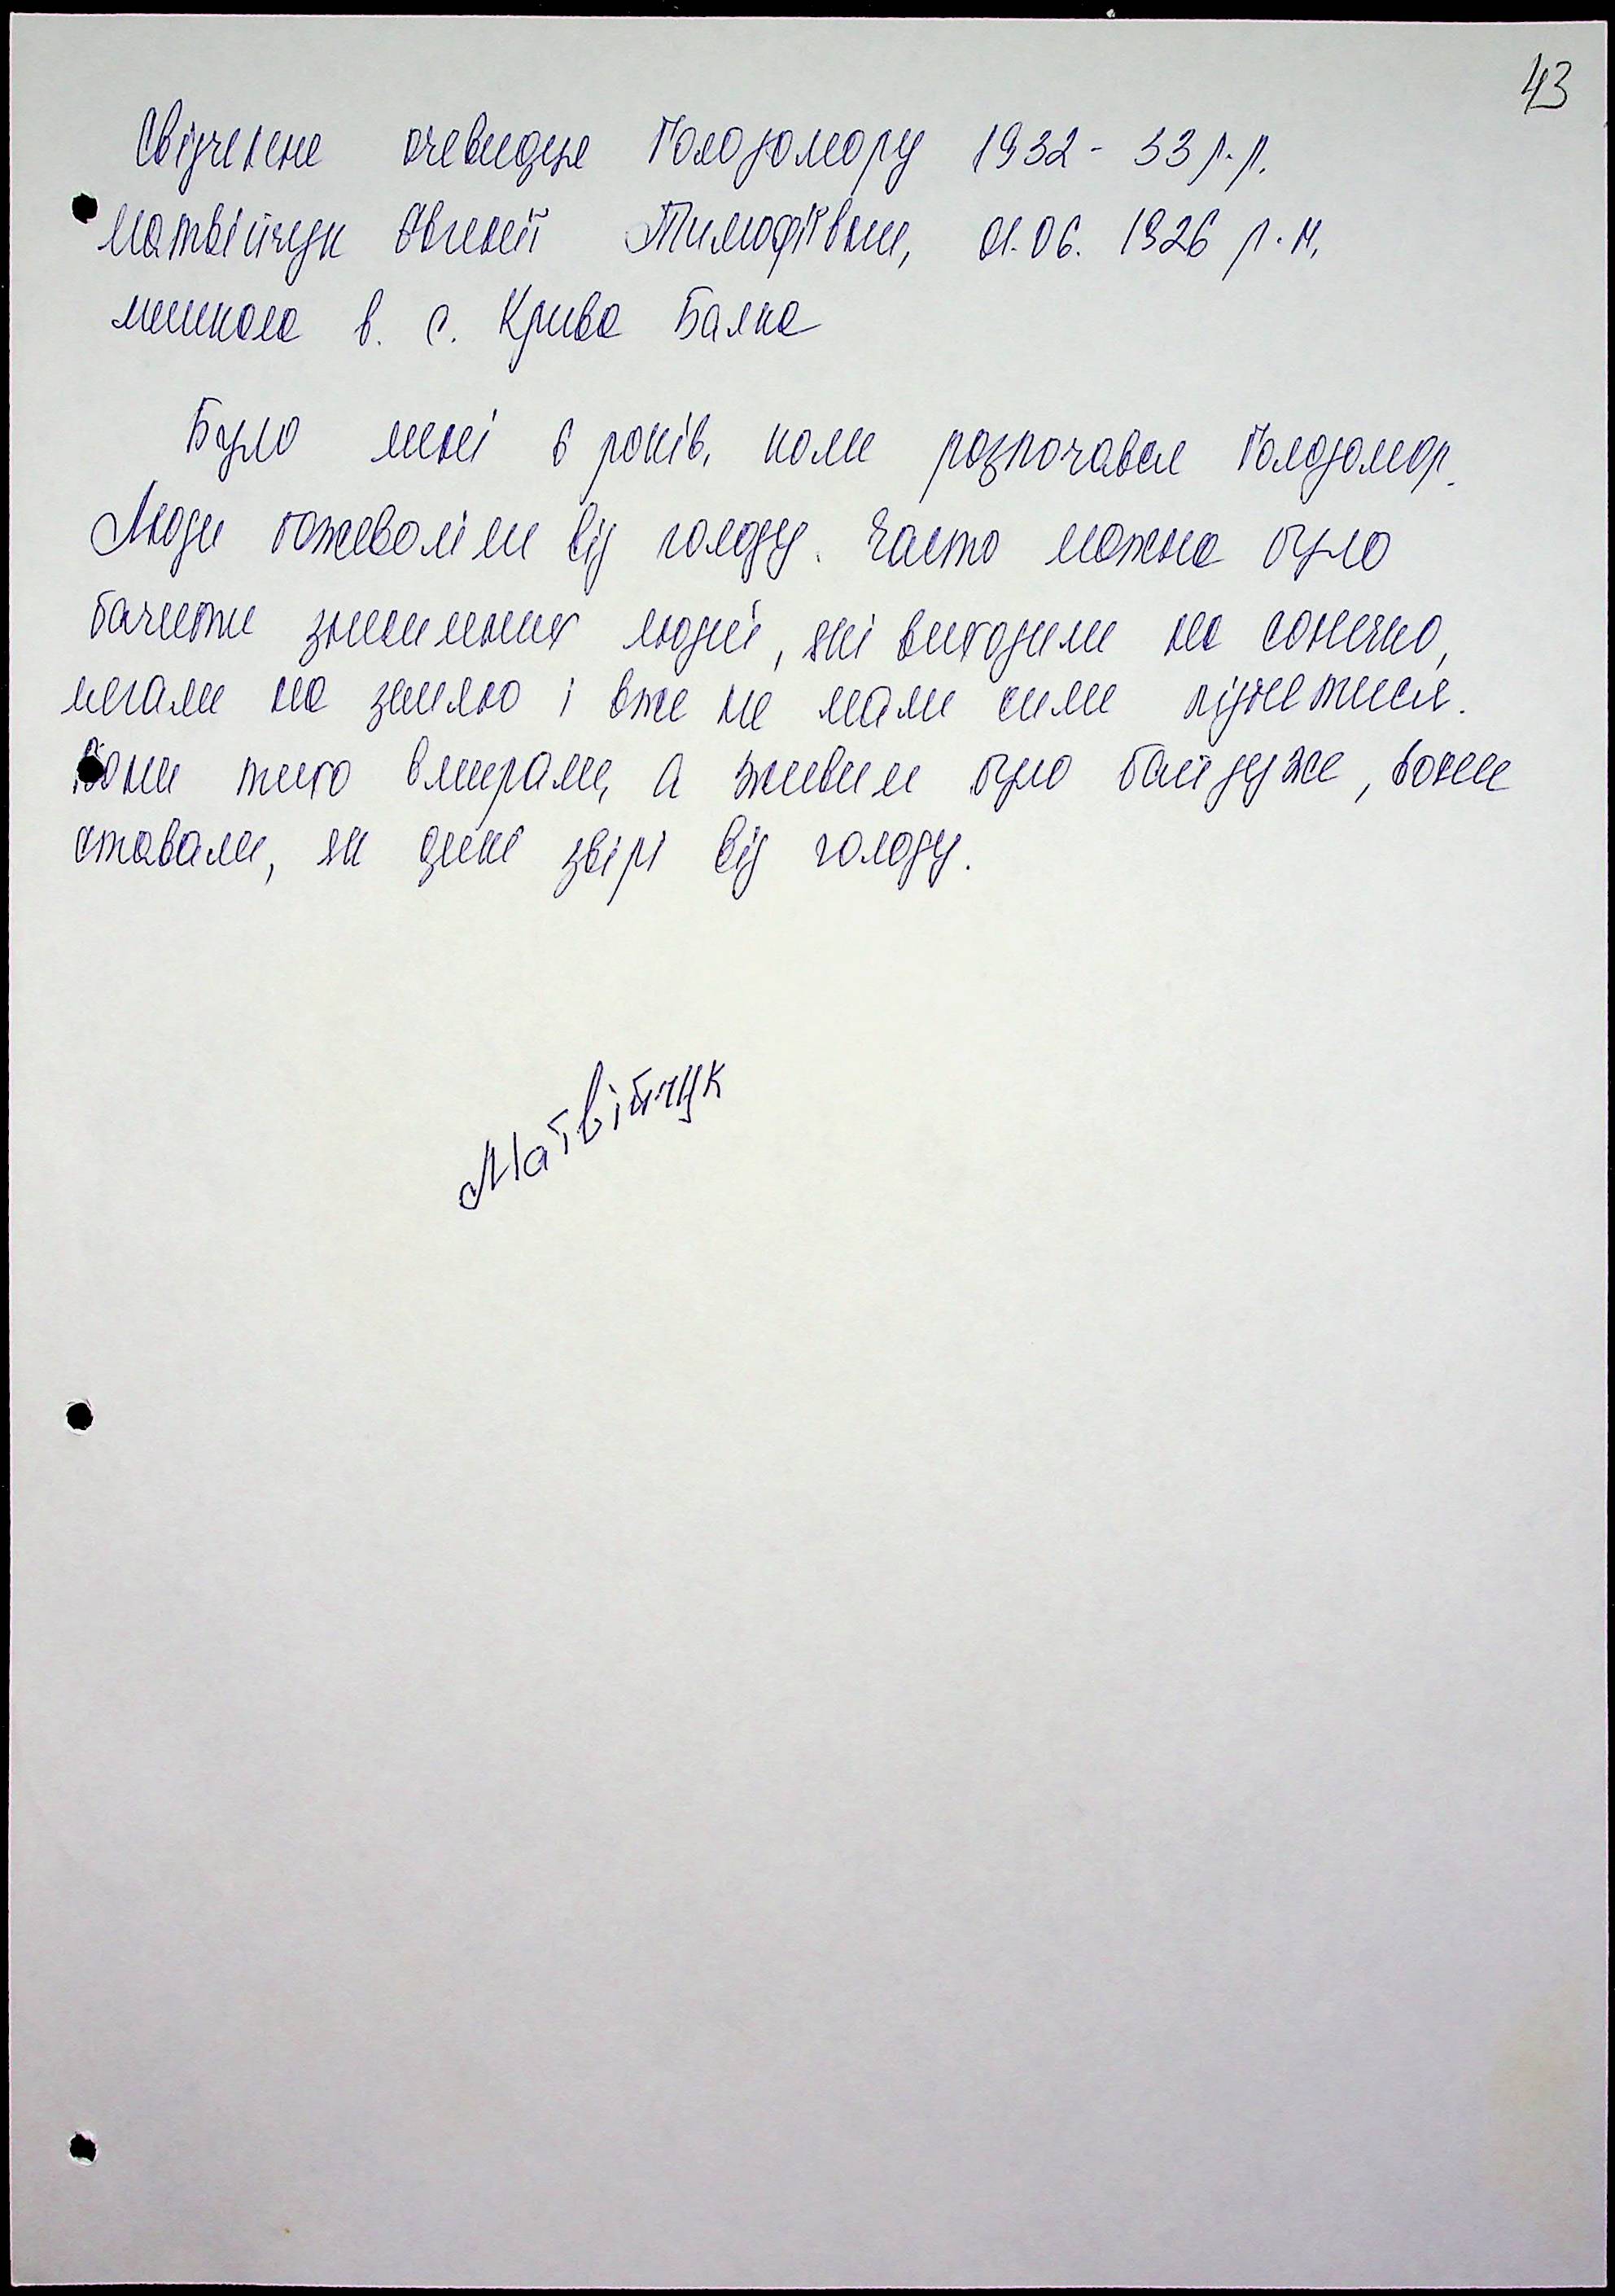 43
Свідчення очевидця Голодомору 1932 - 33 р.р.
Матвійчук Євгенії Тимофіївни, 01.06. 1926 р.н,
мешкала в. с. Крива Балка
Було мені 6 років, коли розпочався Голодомор.
Люди божеволіли від голоду. Часто можна було
бачити знесилених людей, які виходили на сонечко,
лягали на землю і вже не мали сили піднятися.
Вони тихо вмирали, а живим було байдуже, вони
ставали, як дикі звірі від голоду.
Матвійчук